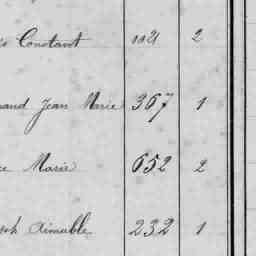 Constant 1021 2
Jean Marie 367 1
Marie 652 2
Aimable 232 1